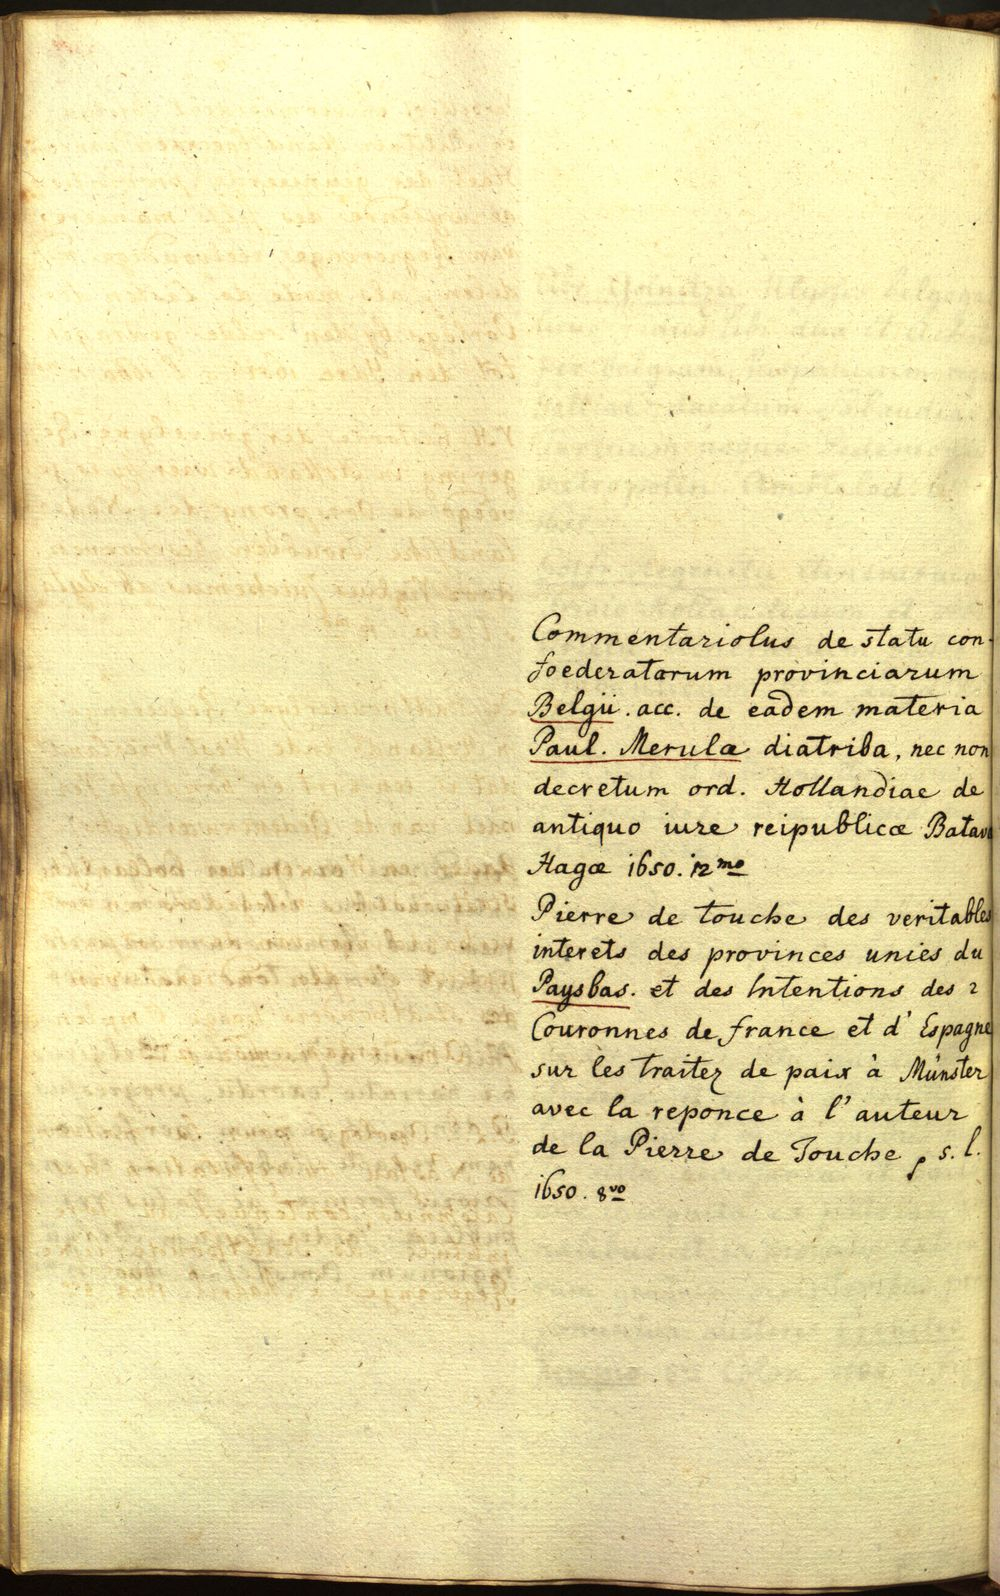 Commentariolus de statu con-
foederatarum provinciarum
Belgii. acc. de eadem materia
Paul. Merulæ diatriba, nec non
decretum ord. Hollandiae de
antiquo iure reipublicæ Batavæ
Hagæ 1650. 12mo
Pierre de touche des veritables
interets des provinces unies du
Paysbas. et des Intentions des 2
Couronnes de france et d'Espagne
sur les traitez de paix à Münster
avec la reponce à l'auteur
de la Pierre de Touche, s. l.
1650. 8vo